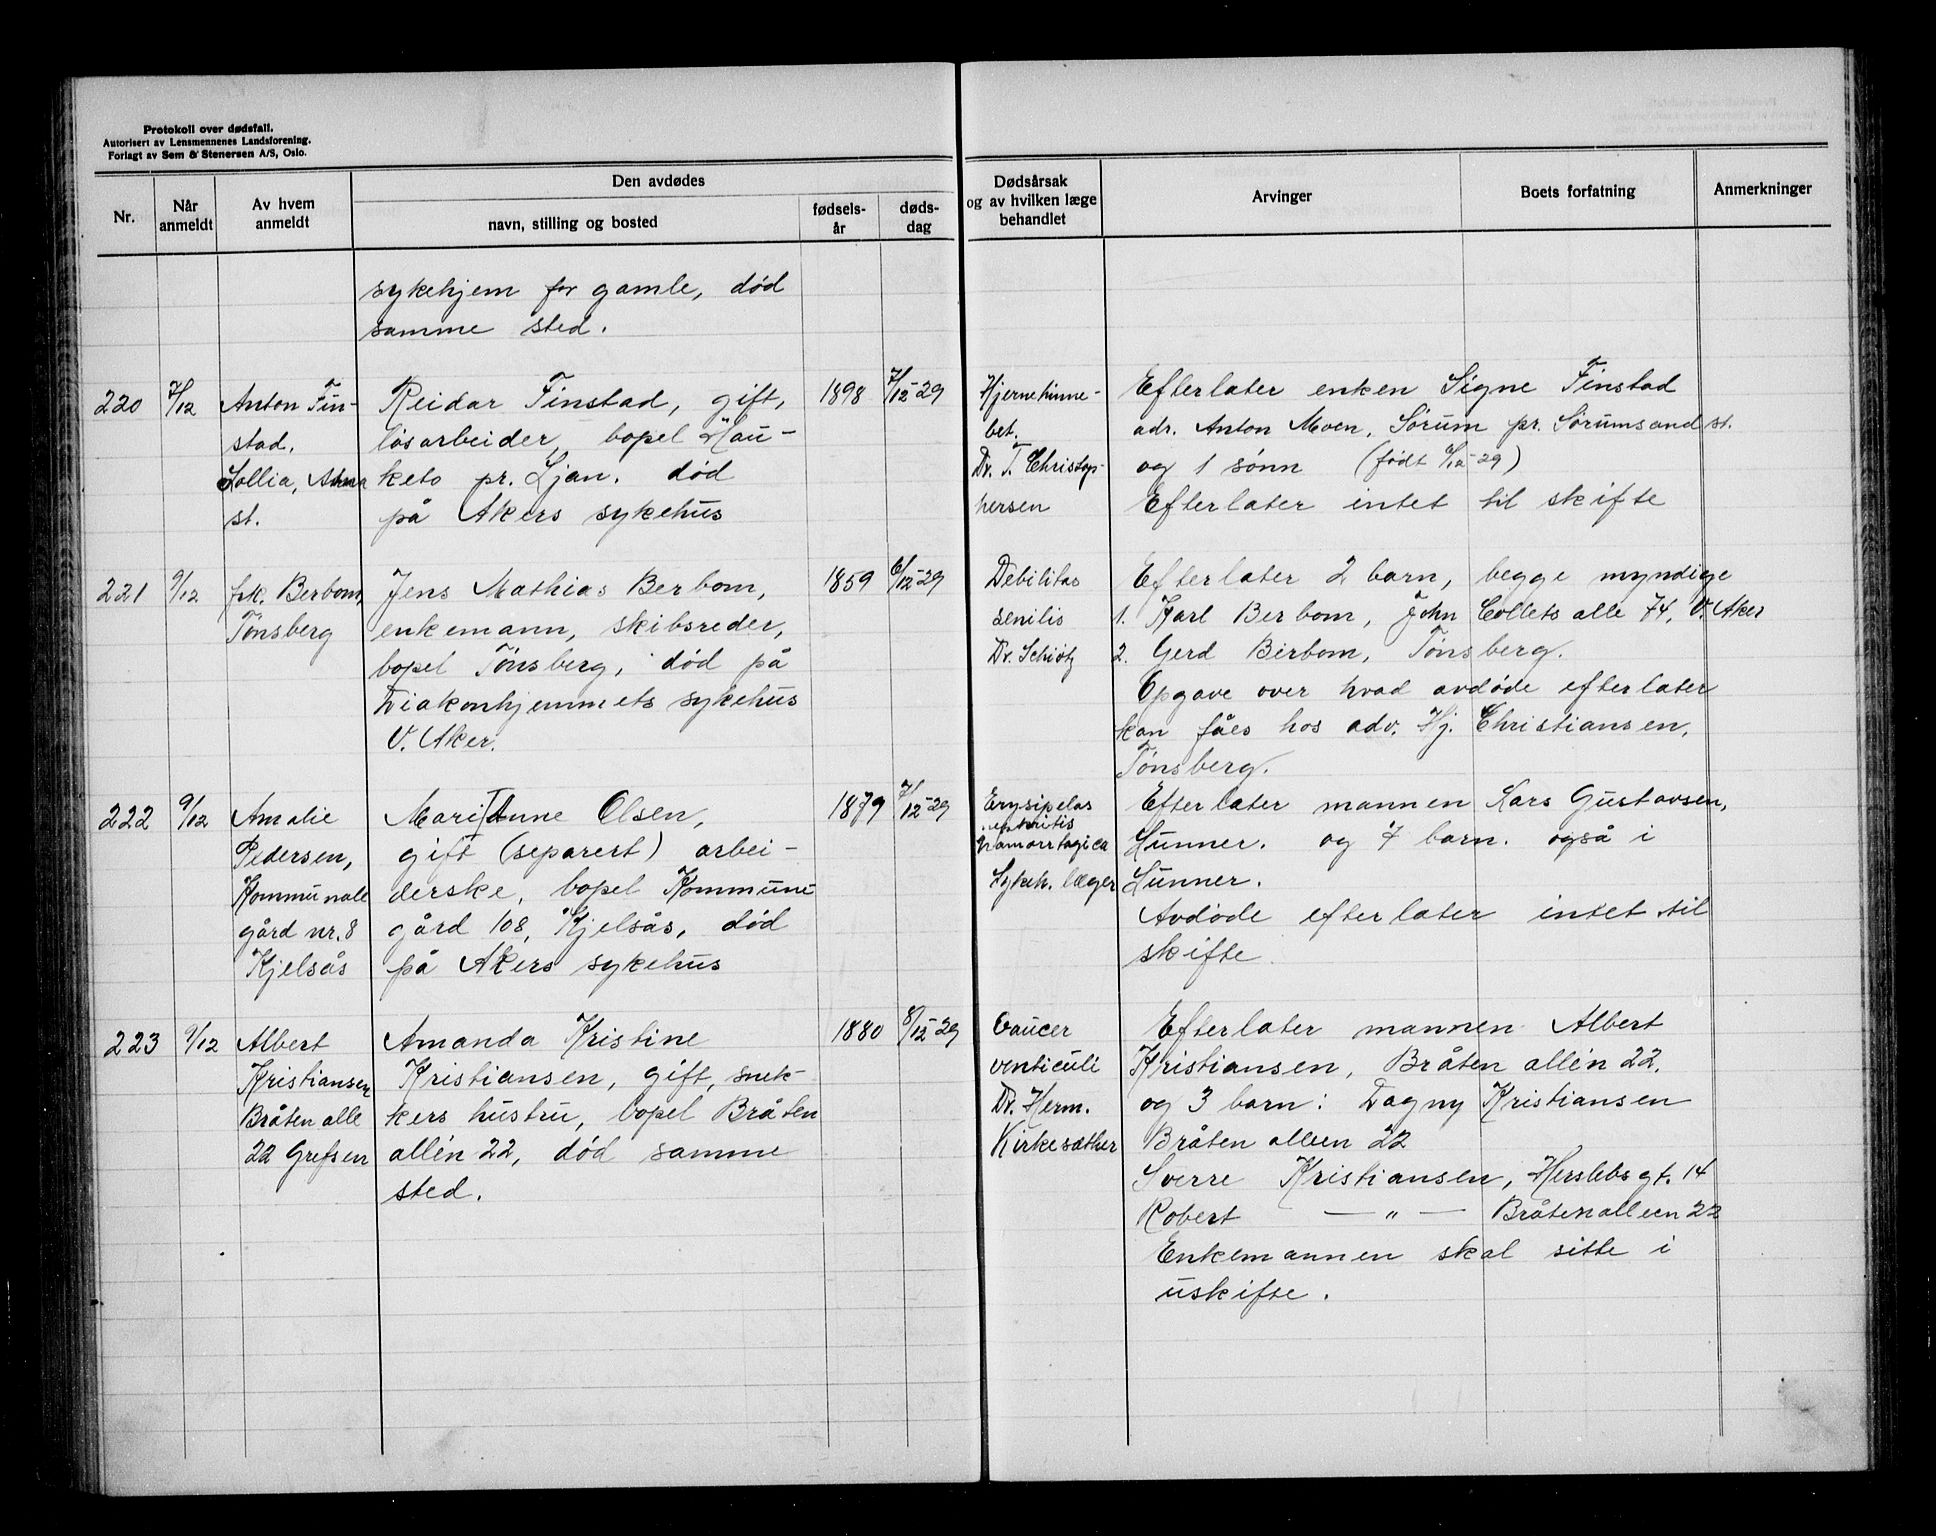 Protokoll over dødsfall.
Autorisert av Lensmennenes Landsforening.
Forlagt av Sem & Stenersen A/S, Oslo.
Nr.
Når anmeldt
Av hvem anmeldt
Den avdødes
navn, stilling og bosted
fødsels-år
døds-dag
Dødsårsak og av hvilken læge behandlet
Arvinger
Boets forfatning
Anmerkninger
sykehjem for gamle, død
samme sted.
220
7/12
Anton Fin-
stad.
Sollia,
st.
Reidar Finstad, gift,
løsarbeider, bopel Hau-
keto pr. Ljan. død
på Akers sykehus
1898
7/12-29
Hjernehinne-
bet.
Dr. T. Christop-
hersen
Efterlater enken Signe Finstad
adr. Anton Moen, Sørum pr. Sørumsand st.
og 1 sønn (født 6/12-29)
Efterlater intet til skifte
221
9/12
frk. Berbom,
Tønsberg
Jens Mathias Berbom,
enkemann, skibsreder,
bopel Tønsberg, død på
Diakonhjemmets sykehus
V. Aker.
1859
6/12-29
Debilitas
senilis
Dr. Schiøtz
Efterlater 2 barn, begge myndige
1. Karl Berbom, John Collets alle 74, V. Aker
2. Gerd Berbom, Tønsberg.
Opgave over hvad avdøde efterlater
kan fåes hos adv. Hj. Christiansen,
Tønsberg.
222
9/12
Amalie
Pedersen,
Kommunale
gård nr. 8
Kjelsås
Mari Anne Olsen,
gift (separert) arbei-
derske, bopel Kommune-
gård 108, Kjelsås, død
på Akers sykehus
1879
7/12-29
Erysipelas
nefritis
hämorrhagica
Sykeh. læger
Efterlater mannen Lars Gustavsen,
Lunner. og 7 barn. også i
Lunner.
Avdøde efterlater intet til
skifte.
223
9/12
Albert
Kristiansen
Bråten alle
22 Grefsen
Amanda Kristine
Kristiansen, gift, snek-
kers hustru, bopel Bråten
allén 22, død samme
sted.
1880
8/12-29
Cancer
venticuli
Dr. Herm.
Kirkesæther
Efterlater mannen Albert
Kristiansen, Bråten allén 22.
og 3 barn: Dagny Kristiansen
Bråten alleen 22
Sverre Kristiansen, Herslebs gt. 14
Robert — " — Bråten alleen 22
Enkemannen skal sitte i
uskifte.